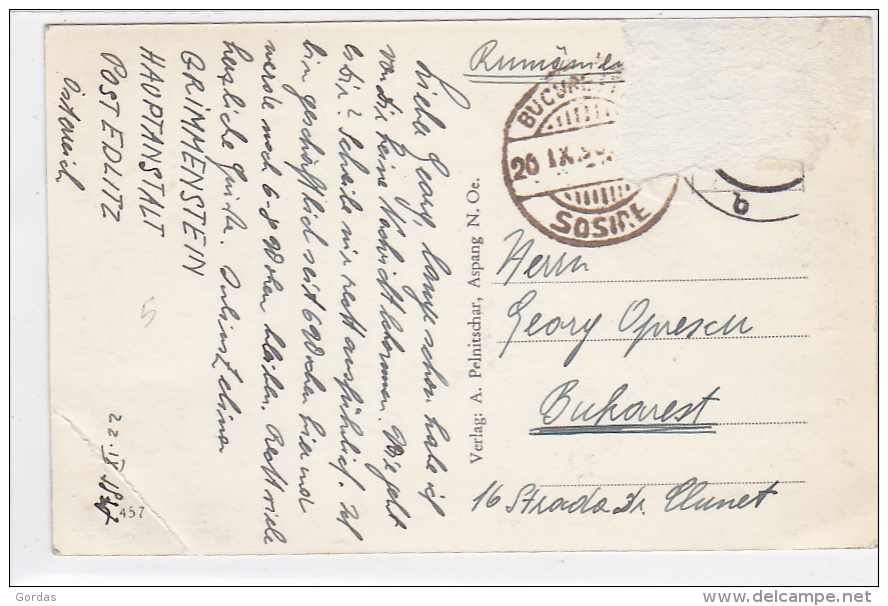 Lieber Georg, lange schon habe ich
von Dir keine Nachricht bekommen. Wie geht
es Dir? Schreibe mir recht ausführlich. Ich
bin geschäftlich seit 6 Wochen hier und
werde noch 6-8 Wochen bleiben. Recht viele
herzliche Grüsse.
GRIMMENSTEIN
HAUPTANSTALT
POST EDLITZ
Österreich
457
Verlag: A. Pelnitschar, Aspang N. Oe.
Rumänien
20 IX
SOSIRE
Herrn
Georg Oprescu
Bukarest
16 Strada Dr. Clunet
Gordas